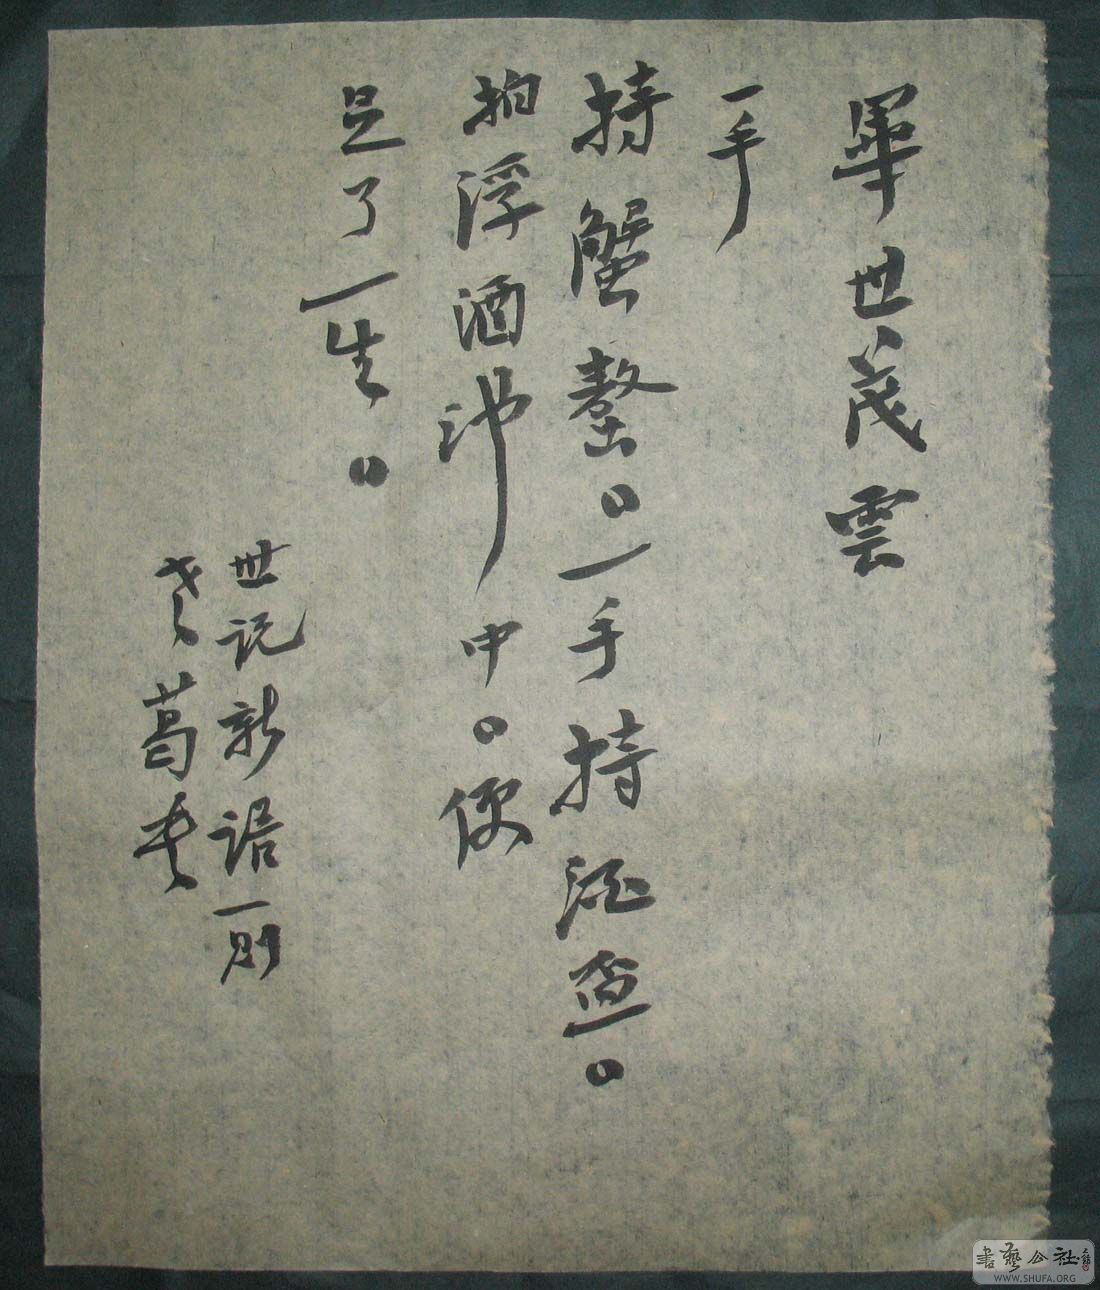 畢世茂雲
一手
持蟹螯。一手持酒盃。
拍浮酒池中。便
足了一生。
世説新語一則
老葛書
書藝公社
WWW.SHUFA.ORG